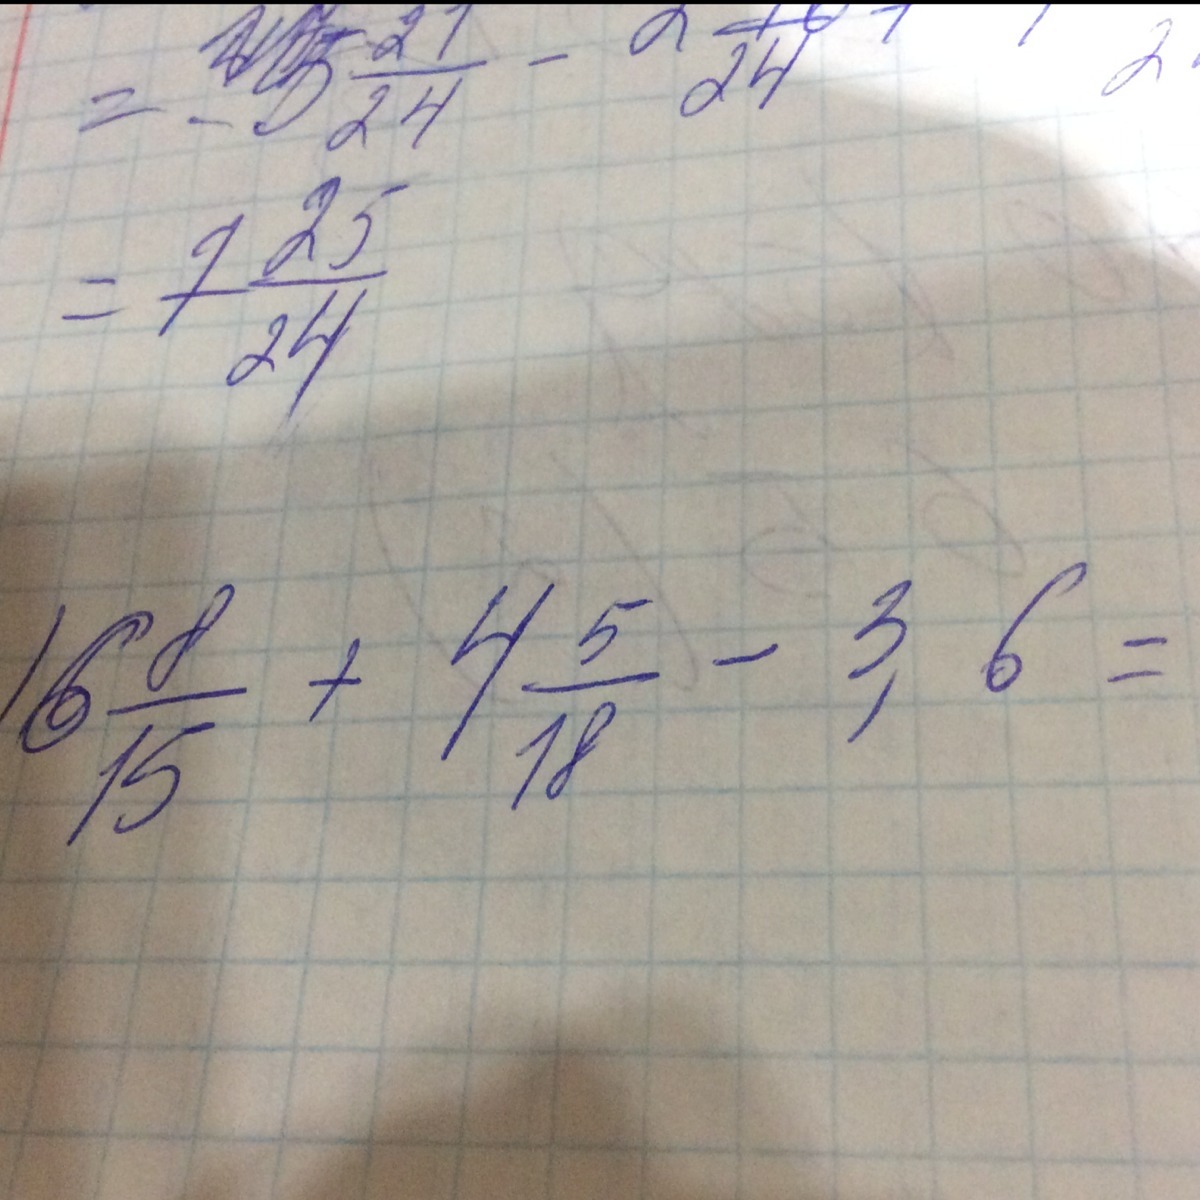 = - 5 21/24 - 2 /24
= 7 25/24
16 8/15 + 4 5/18 - 3,6 =